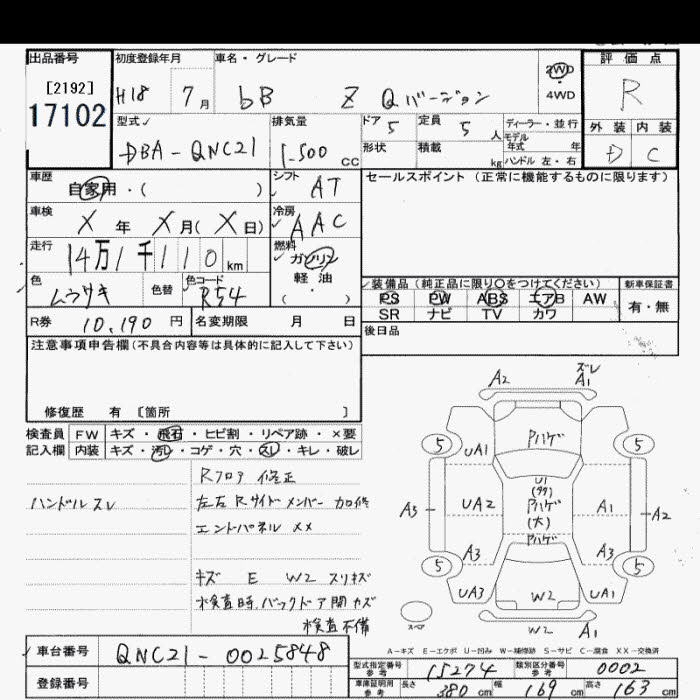 出品番号 初度登録年月 車名・グレード 評価点
[2192]
17102
H18 7月 bB Z Qバージョン 2WD 4WD R
型式 DBA-QNC21 排気量 1.500 cc
ドア 5 定員 5 人 ディーラー・並行
モデル年式 年
形状 積載 kg ハンドル 左・右
外装 内装
D C
車歴 自家用・( ) シフト AT セールスポイント (正常に機能するものに限ります)
車検 X 年 X 月( X 日) 冷房 AAC
走行 14万1千110 km 燃料 ガソリン
軽油
( ・ )
色 ムラサキ 色替 色コード R54
装備品 (純正品に限り○をつけてください) 新車保証書
PS PW ABS エアB AW 有・無
SR ナビ TV カワ
R券 10,190 円 名変期限 月 日 後日品
注意事項申告欄 (不具合内容等は具体的に記入して下さい)
修復歴 有 [箇所 ]
検査員記入欄 FW キズ・飛石・ヒビ割・リペア跡・×要
内装 キズ・汚レ・コゲ・穴・スレ・キレ・破レ
Rフロア 修正
ハンドルスレ 左右Rサイドメンバー 加修
エンドパネル XX
キズ E W2 スリキズ
検査時、バックドア開カズ
検査不備
A2 ズレ A1
5 UA1 Pハゲ 5
U1
A3 UA2 Pハゲ (大) A1 A2
Pハゲ
A3 A3
5 UA3 W2 UA1 5
スペア W2 A1
A-キズ E-エクボ U-凹み W-補修跡 S-サビ C-腐食 XX-交換済
車台番号 QNC21-0025848
型式指定番号 参考 15274 類別区分番号 参考 0002
登録番号
車庫証明用 参考 長さ 380 cm 幅 169 cm 高さ 163 cm